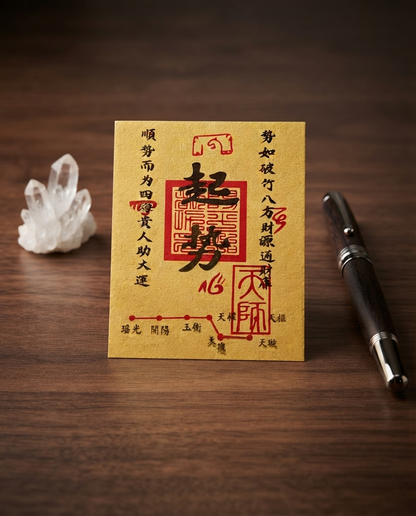 勢如破竹八方財源通財庫
起勢
順勢而为四海貴人助大運
心
天師
瑶光 開陽 玉衡 天權 天樞
天璇